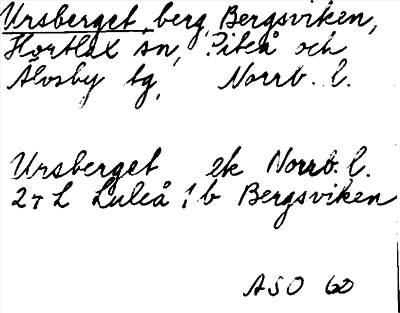 Ursberget, berg, Bergsviken,
Hortlax sn, Piteå och
Älvsby tg, Norrb. l.
Ursberget ek Norrb. l.
24 L Luleå 1 b Bergsviken
ASO 60